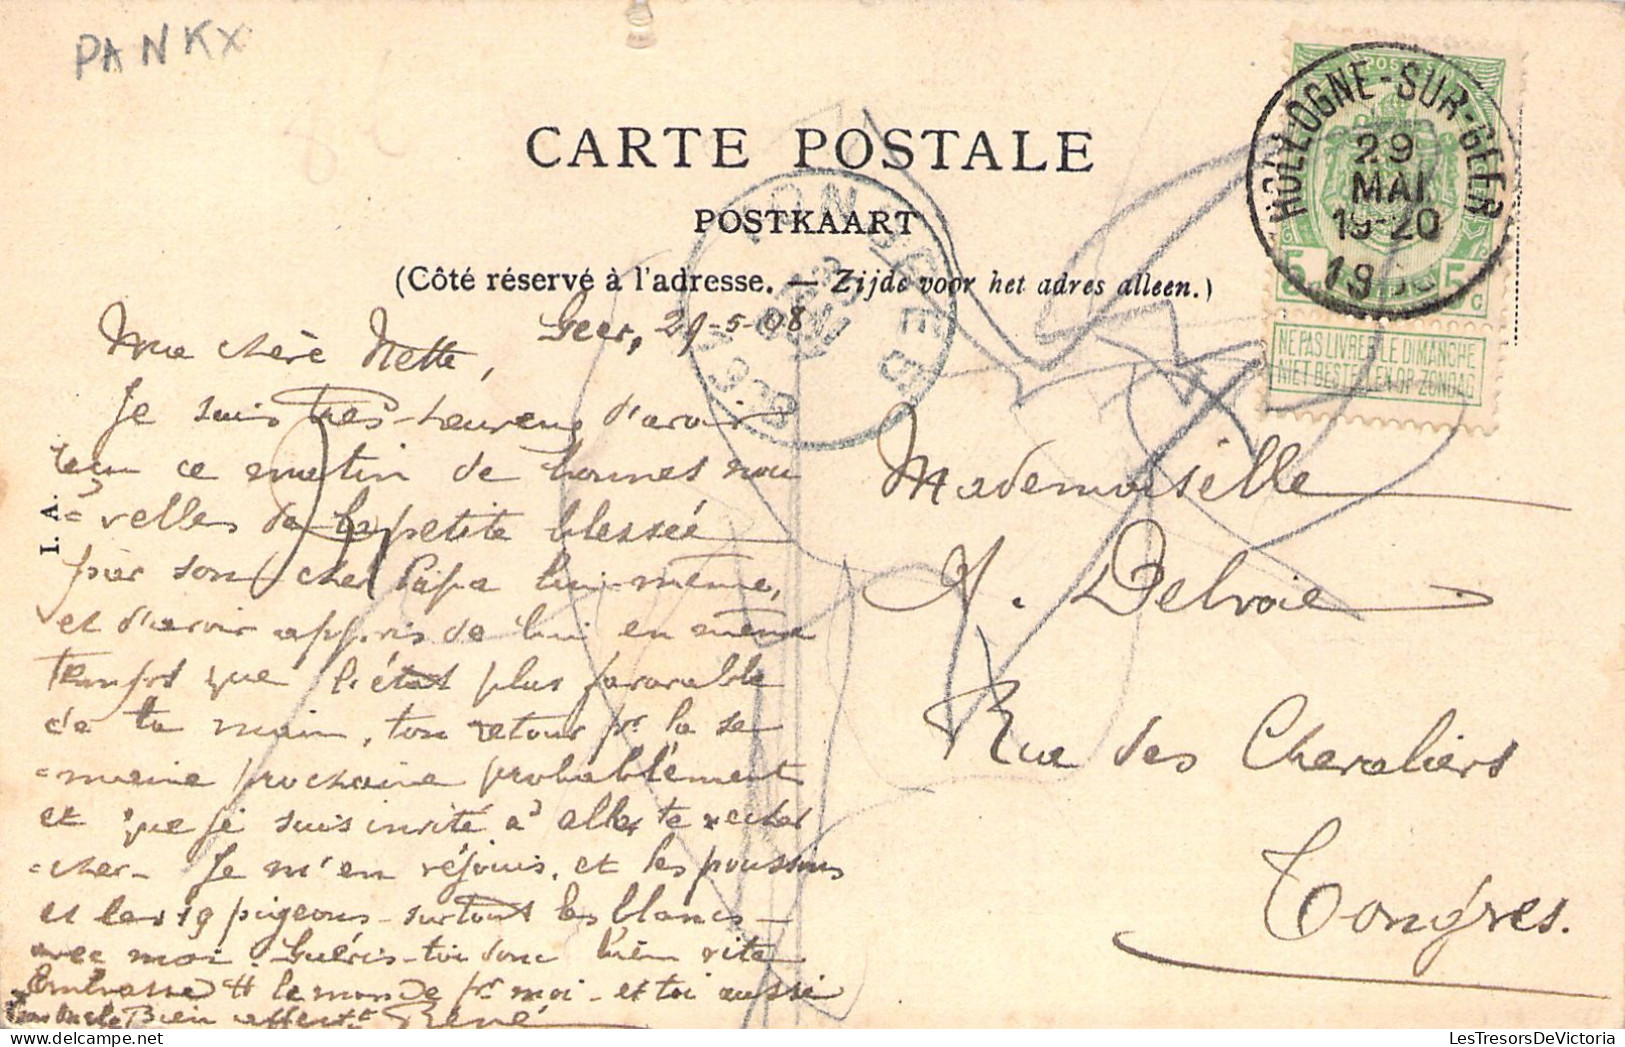 PANKX
CARTE POSTALE
POSTKAART
(Côté réservé à l'adresse. — Zijde voor het adres alleen.)
HOLLOGNE-SUR-GEER
29
MAI
19-20
19
5 5
NE PAS LIVRER LE DIMANCHE
NIET BESTELLEN OP ZONDAG
TONGEREN
I. A.
Geer, 29-5-08
Ma chère Nette,
Je suis très-heureux d'avoir
reçu ce matin de bonnes nou
= velles de la petite blessée
par son cher Papa lui-même,
et d'avoir appris de lui en même
temps que l'état plus favorable
de ta main, ton retour pr la se
= maine prochaine probablement
et que je suis invité à aller te recher
= cher - Je m'en réjouis, et les poussins
et les 19 pigeons - surtout les blancs -
avec moi. Guéris-toi donc bien vite
Embrasse tt le monde pr moi - et toi aussi
Bien affectt René
Mademoiselle
A. Delvoie
Rue des Chevaliers
Tongres.
LesTresorsDeVictoria